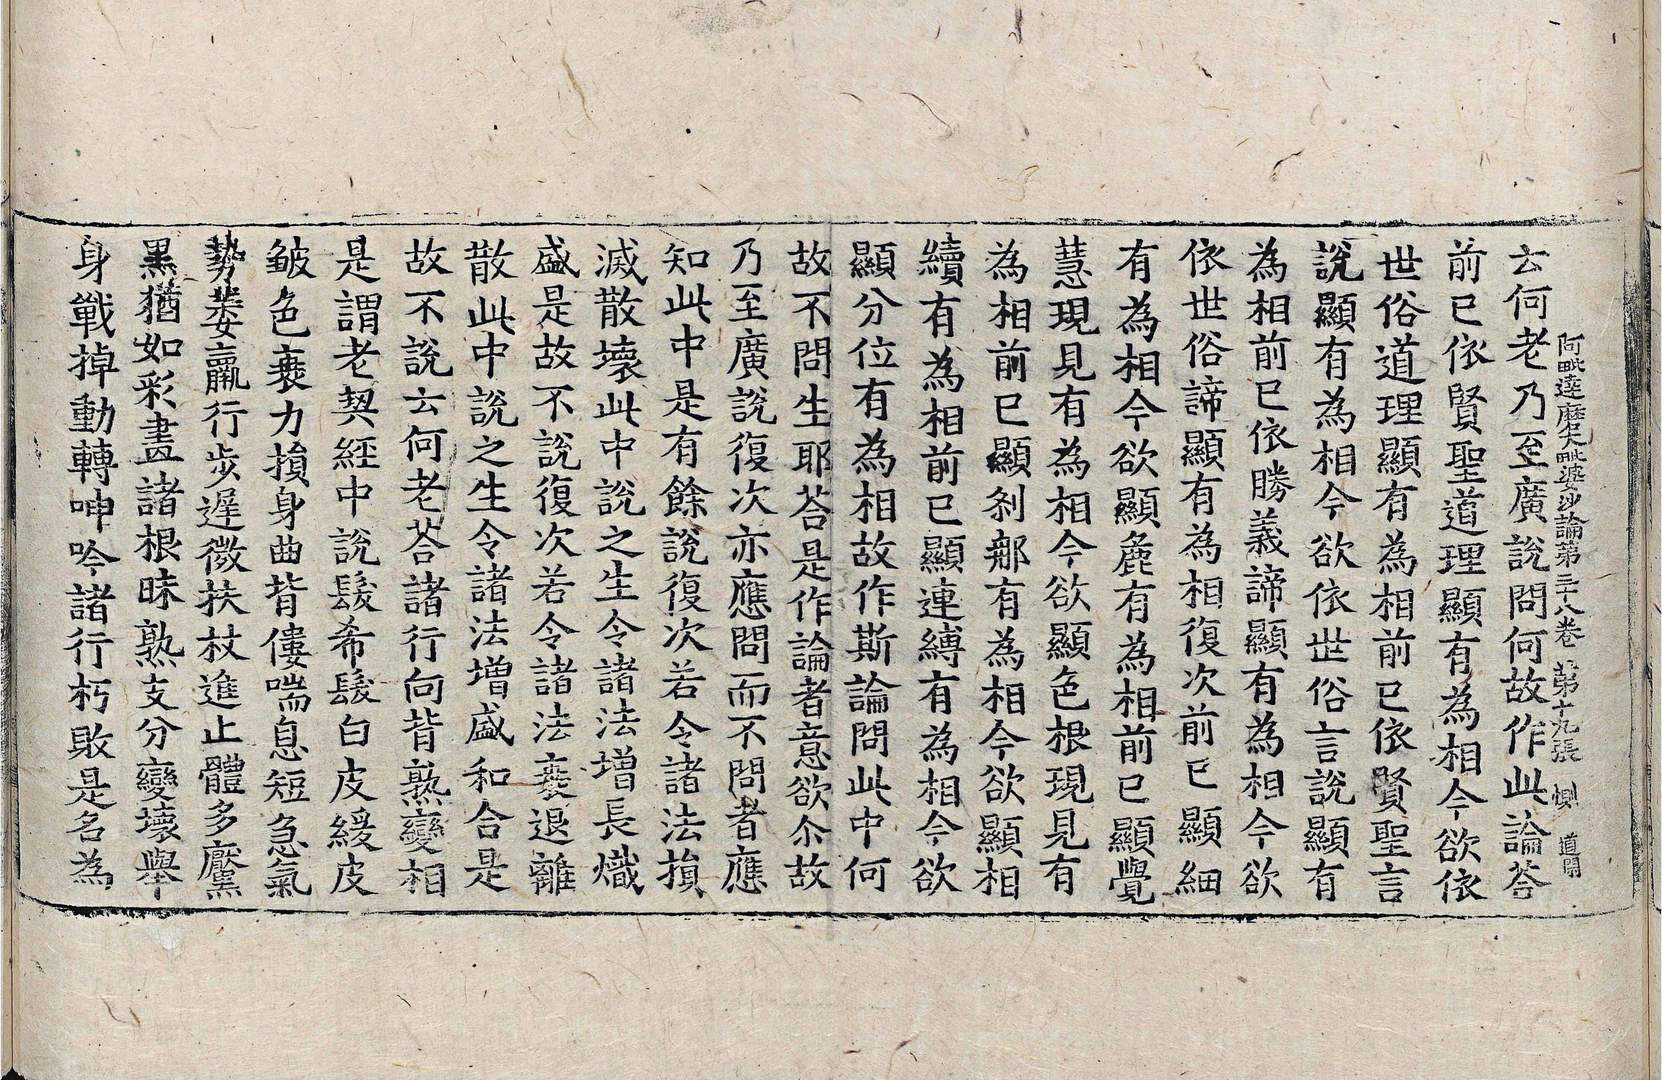 阿毗達磨大毗婆沙論第三十八卷 第十九張 惻 道開
云何老乃至廣說問何故作此論荅
前已依賢聖道理顯有為相今欲依
世俗道理顯有為相前已依賢聖言
說顯有為相今欲依世俗言說顯有
為相前已依勝義諦顯有為相今欲
依世俗諦顯有為相復次前已顯細
有為相今欲顯麁有為相前已顯覺
慧現見有為相今欲顯色根現見有
為相前已顯剎那有為相今欲顯相
續有為相前已顯連縛有為相今欲
顯分位有為相故作斯論問此中何
故不問生耶荅是作論者意欲尒故
乃至廣說復次亦應問而不問者應
知此中是有餘說復次若令諸法損
滅散壞此中說之生令諸法增長熾
盛是故不說復次若令諸法衰退離
散此中說之生令諸法增盛和合是
故不說云何老荅諸行向背熟變相
是謂老契經中說髮希髮白皮緩皮
皺色衰力損身曲背僂喘息短急氣
勢萎羸行步遲微扶杖進止體多黶
黑猶如彩畫諸根昧熟支分變壞舉
身戰掉動轉呻吟諸行朽敗是名為